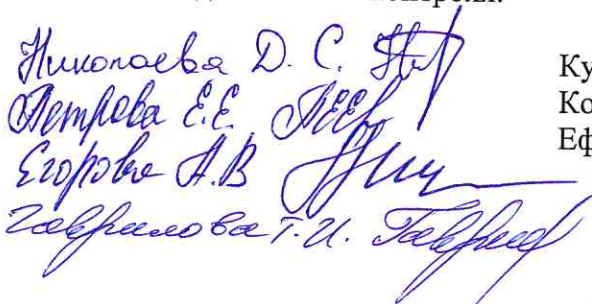 Николаева Д. С.
Петрова Е.Е.
Егорова А.В
Гаврилова Т.И.
Ку
Ко
Еф